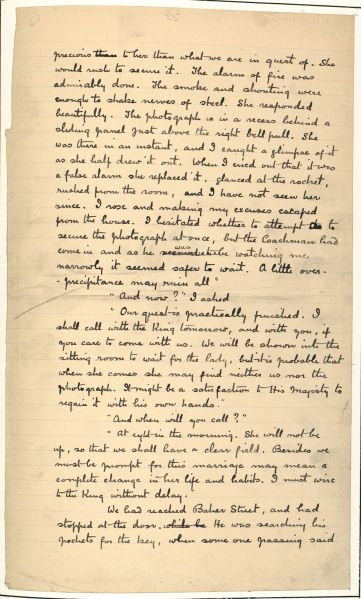 precious than to her than what we are in quest of. She
would rush to secure it. The alarm of fire was
admirably done. The smoke and shouting were
enough to shake nerves of steel. She responded
beautifully. The photograph is in a recess behind a
sliding panel just above the right bell pull. She
was there in an instant, and I caught a glimpse of it
as she half drew it out. When I cried out that it was
a false alarm she replaced it, glanced at the rocket,
rushed from the room, and I have not seen her
since. I rose and making my excuses escaped
from the house. I hesitated whether to attempt to
secure the photograph at once, but the Coachman had
come in and as he was watching me
narrowly it seemed safer to wait. A little over-
-precipitance may ruin all"
"And now?" I asked
"Our quest is practically finished. I
shall call with the King tomorrow, and with you, if
you care to come with us. We will be shown into the
sitting room to wait for the lady, but it is probable that
when she comes she may find neither us nor the
photograph. It might be a satisfaction to His Majesty to
regain it with his own hands."
"And when will you call?"
"At eight in the morning. She will not be
up, so that we shall have a clear field. Besides we
must be prompt for this marriage may mean a
complete change in her life and habits. I must wire
to the King without delay."
We had reached Baker Street, and had
stopped at the door. while he He was searching his
pockets for the key, when some one passing said